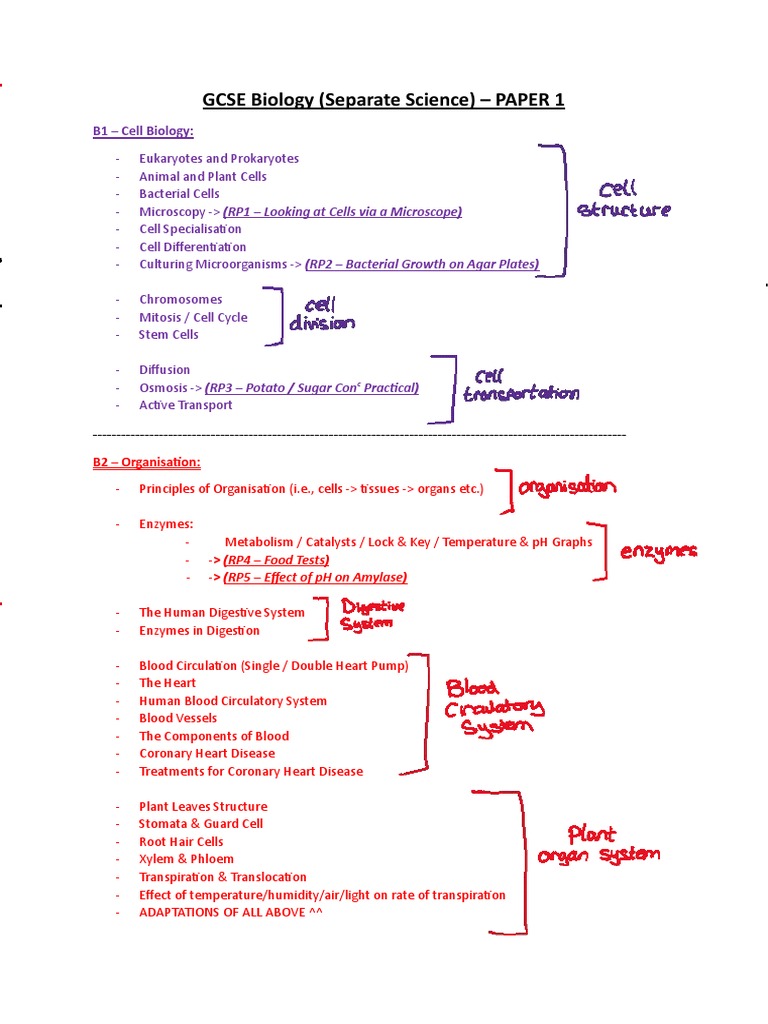 GCSE Biology (Separate Science) – PAPER 1
B1 – Cell Biology:
- Eukaryotes and Prokaryotes
- Animal and Plant Cells
- Bacterial Cells
- Microscopy -> (RP1 – Looking at Cells via a Microscope)
- Cell Specialisation
- Cell Differentiation
- Culturing Microorganisms -> (RP2 – Bacterial Growth on Agar Plates)
cell
structure
- Chromosomes
- Mitosis / Cell Cycle
- Stem Cells
cell
division
- Diffusion
- Osmosis -> (RP3 – Potato / Sugar Conᶜ Practical)
- Active Transport
cell
transportation
B2 – Organisation:
- Principles of Organisation (i.e., cells -> tissues -> organs etc.)
organisation
- Enzymes:
- Metabolism / Catalysts / Lock & Key / Temperature & pH Graphs
- -> (RP4 – Food Tests)
- -> (RP5 – Effect of pH on Amylase)
enzymes
- The Human Digestive System
- Enzymes in Digestion
Digestive
System
- Blood Circulation (Single / Double Heart Pump)
- The Heart
- Human Blood Circulatory System
- Blood Vessels
- The Components of Blood
- Coronary Heart Disease
- Treatments for Coronary Heart Disease
Blood
Circulatory
System
- Plant Leaves Structure
- Stomata & Guard Cell
- Root Hair Cells
- Xylem & Phloem
- Transpiration & Translocation
- Effect of temperature/humidity/air/light on rate of transpiration
- ADAPTATIONS OF ALL ABOVE ^^
Plant
organ system